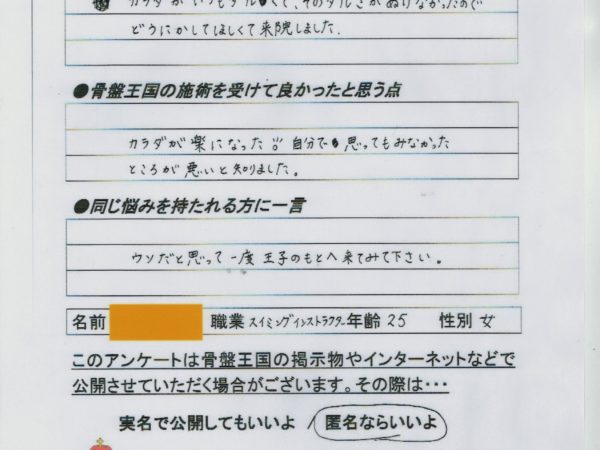 カラダがいつもダルくて、そのダルさがぬけなかったので
どうにかしてほしくて来院しました。
●骨盤王国の施術を受けて良かったと思う点
カラダが楽になった 自分で思ってもみなかった
ところが悪いと知りました。
●同じ悩みを持たれる方に一言
ウソだと思って一度王子のもとへ来てみて下さい。
名前 職業 スイミングインストラクター 年齢 25 性別 女
このアンケートは骨盤王国の掲示物やインターネットなどで
公開させていただく場合がございます。その際は・・・
実名で公開してもいいよ / 匿名ならいいよ